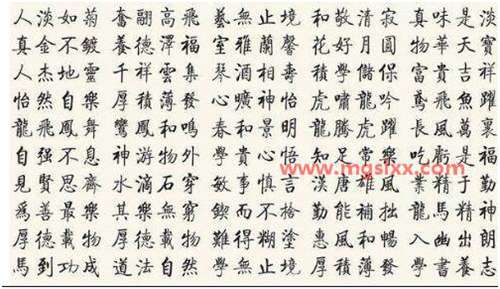 人淡如菊 奮翮高飛 藝無止境 和敬清寂 真味是淡
真金不鍍 養德澤福 室雅蘭馨 花好月圓 物華天寶
人杰地靈 千祥雲集 學儲 富貴吉祥
怡然自樂 厚積薄發 曠神怡 虎嘯龍吟 鳶飛魚躍
龍飛鳳舞 鸞鳳和鳴 春和景明 龍騰虎躍 長風萬裏
自强不息 神游物外 學貴心悟 知足常樂 吃虧是福
見賢思齊 水滴石穿 敏事慎言 漢唐雄風 業精于勤
為善最樂 其樂無窮 鍥而不捨 勤能補拙 龍馬精神
厚德載物 難得糊塗 惠風和暢 入幽出朗
馬到功成 道法自然 學無止境 厚積薄發 學書養志
www.mgsixx.com